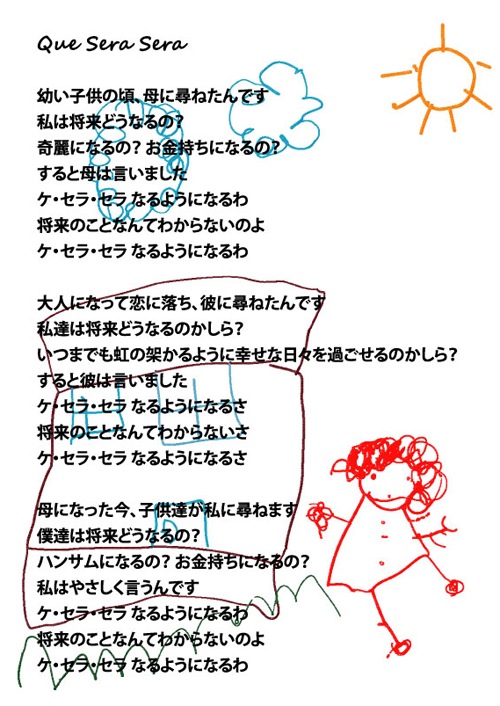 Que Sera Sera
幼い子供の頃、母に尋ねたんです
私は将来どうなるの?
奇麗になるの? お金持ちになるの?
すると母は言いました
ケ・セラ・セラ なるようになるわ
将来のことなんてわからないのよ
ケ・セラ・セラ なるようになるわ
大人になって恋に落ち、彼に尋ねたんです
私達は将来どうなるのかしら?
いつまでも虹の架かるように幸せな日々を過ごせるのかしら?
すると彼は言いました
ケ・セラ・セラ なるようになるさ
将来のことなんてわからないさ
ケ・セラ・セラ なるようになるさ
母になった今、子供達が私に尋ねます
僕達は将来どうなるの?
ハンサムになるの? お金持ちになるの?
私はやさしく言うんです
ケ・セラ・セラ なるようになるわ
将来のことなんてわからないのよ
ケ・セラ・セラ なるようになるわ